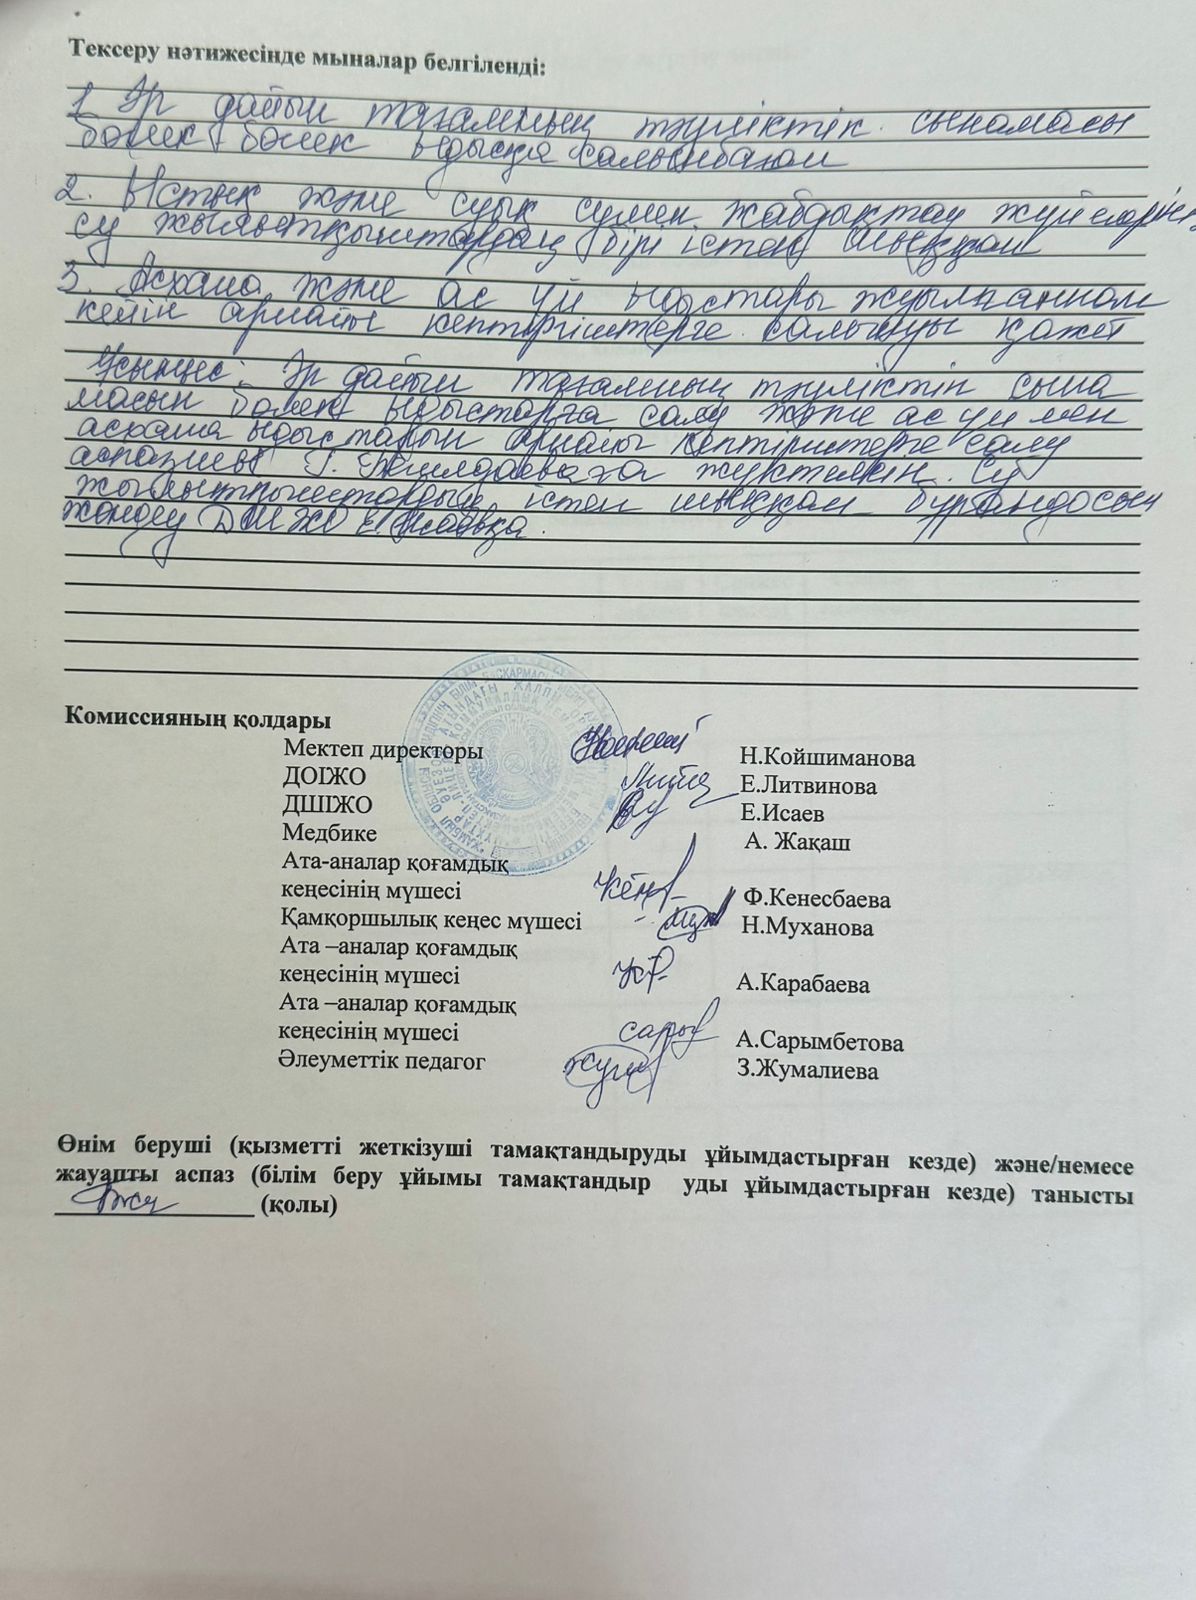 Тексеру нәтижесінде мыналар белгіленді:
1. Әр дайын тағамның тәуліктік сынамасы
бөлек бөлек ыдысқа салынбаған
2. Ыстық және суық сумен жабдықтау жүйелерінің
су жылытқыштардың бірі істен шыққан
3. Асхана және ас үй ыдыстары жуылғаннан
кейін арнайы кептіргіштерге салынуы қажет
Ұсыныс: Әр дайын тағамның тәуліктік сына
масын бөлек ыдыстарға салу және ас үй мен
асхана ыдыстарын арнайы кептіргіштерге салу
аспазшы Г. жүктелсін. Су
жылытқыштардың істен шыққан
жөндеу ДШІЖО Е.Исаевқа.
Комиссияның қолдары
Мектеп директоры Н.Койшиманова
ДОІЖО Е.Литвинова
ДШІЖО Е.Исаев
Медбике А. Жақаш
Ата-аналар қоғамдық
кеңесінің мүшесі Ф.Кенесбаева
Қамқоршылық кеңес мүшесі Н.Муханова
Ата –аналар қоғамдық
кеңесінің мүшесі А.Карабаева
Ата –аналар қоғамдық
кеңесінің мүшесі А.Сарымбетова
Әлеуметтік педагог З.Жумалиева
Өнім беруші (қызметті жеткізуші тамақтандыруды ұйымдастырған кезде) және/немесе
жауапты аспаз (білім беру ұйымы тамақтандыр уды ұйымдастырған кезде) танысты
(қолы)